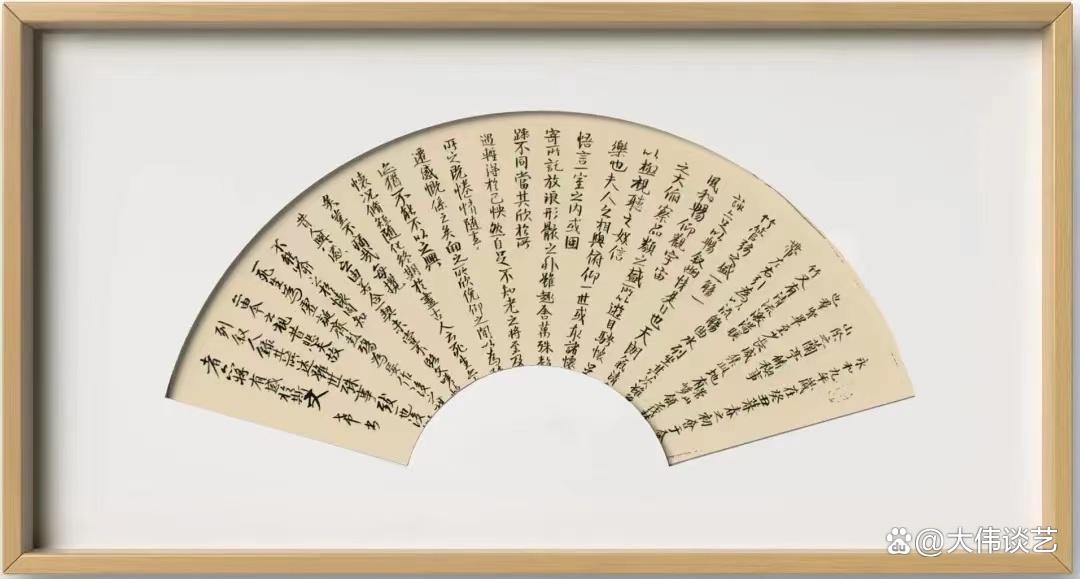 永和九年歲在癸丑暮春之初會于會
山陰之蘭亭脩稧事
也群賢畢至少長咸集此地有崇山
竹又有清流激湍暎
帶左右引以為流觴曲水列坐其次
竹管弦之盛一觴一
詠亦足以暢敘幽情是日也天朗氣清
風和暢仰觀宇宙
之大俯察品類之盛所以遊目騁懷
以極視聽之娛信
樂也夫人之相與俯仰一世或取諸懷
悟言一室之內或因
寄所託放浪形骸之外雖趣舍萬殊
躁不同當其欣於所
遇暫得於己快然自足不知老之將至及
所之既惓情隨事
遷感慨係之矣向之所欣俛仰之閒以為
迹猶不能不以之興
懷況脩短隨化終期於盡古人云死生
矣豈不痛哉每攬
昔人興感之由若合一契未嘗不臨文嗟
不能喻之於懷固知
一死生為虛誕齊彭殤為妄作後之
亦由今之視昔悲夫故
列敘時人錄其所述雖世殊事
致也後
者亦將有感於斯文
书
@大伟谈艺